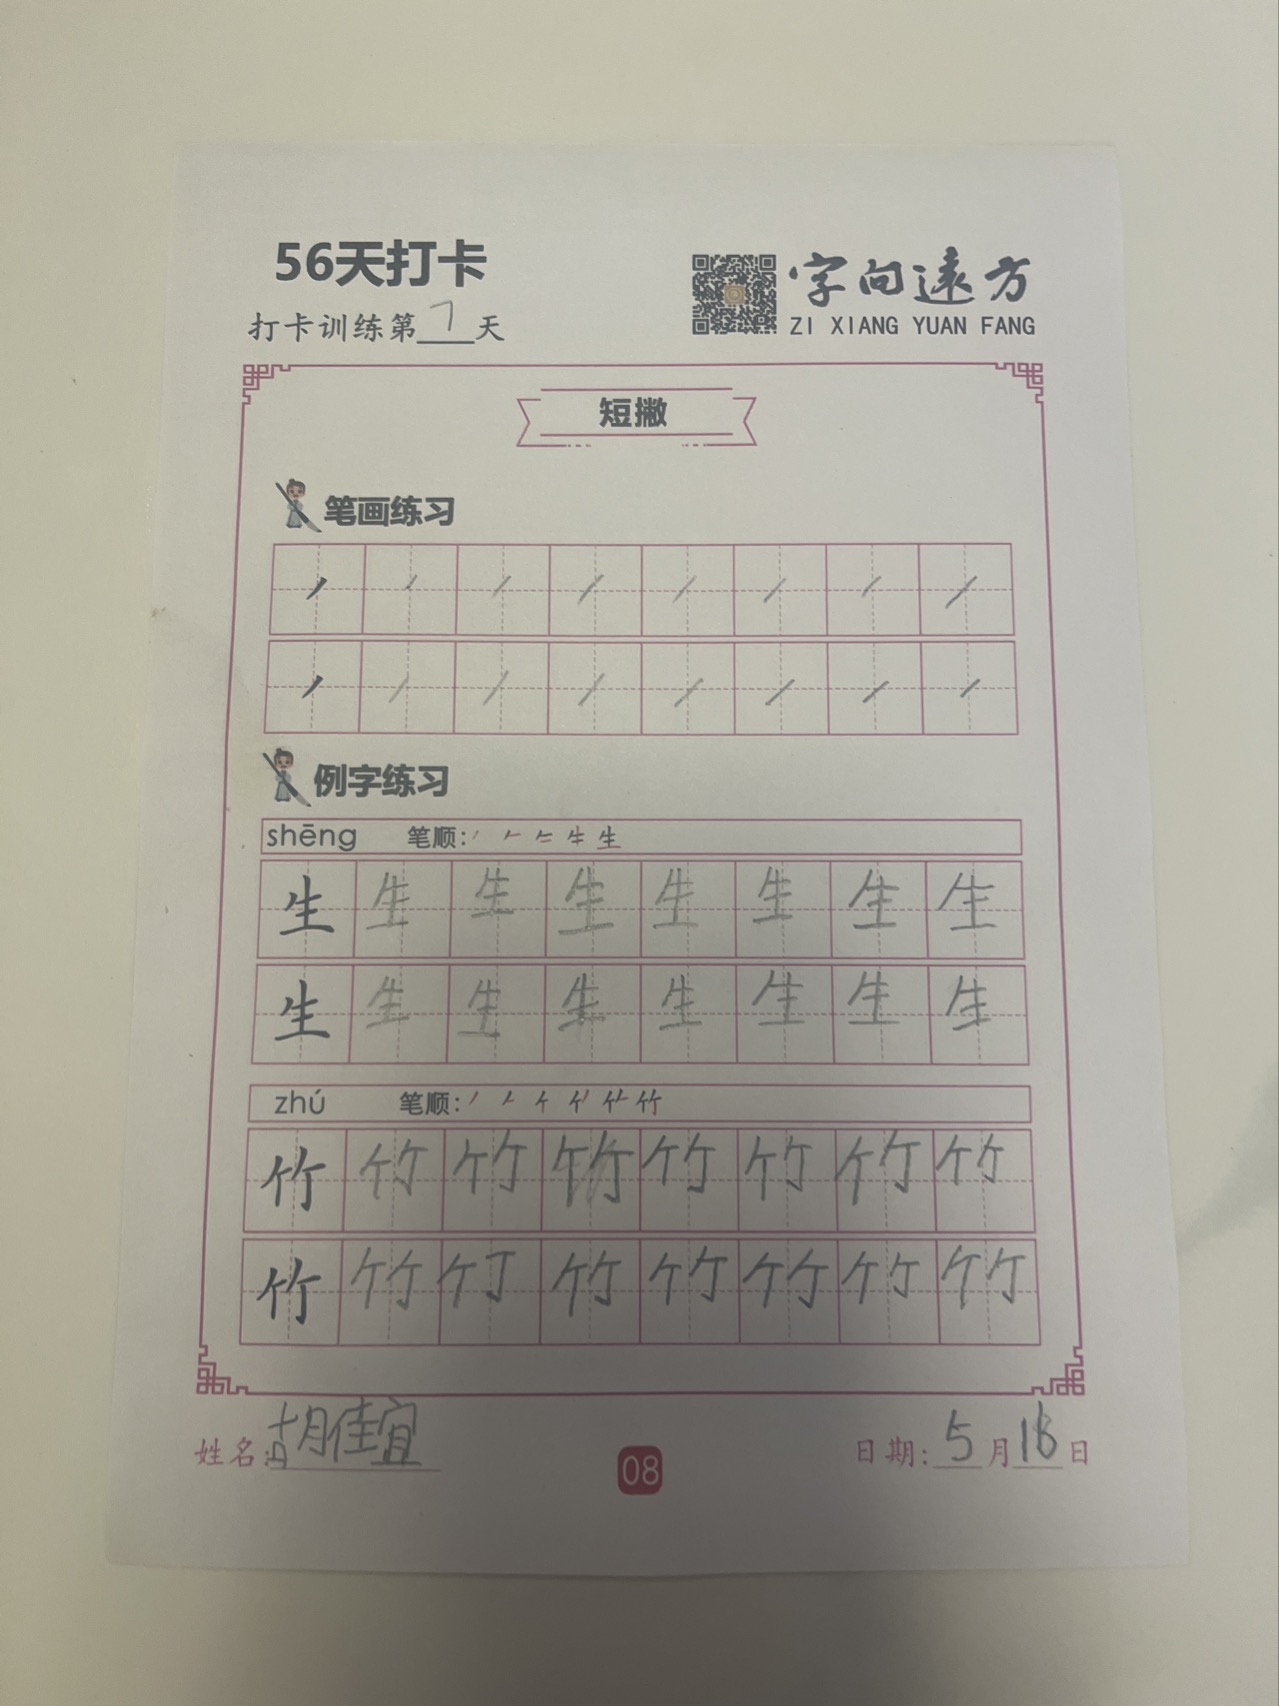 56天打卡
字向遠方
打卡训练第7天
ZI XIANG YUAN FANG
短撇
笔画练习
例字练习
shēng 笔顺:
生 生 生 生 生 生 生 生
生 生 生 生 生 生 生 生
zhú 笔顺:
竹 竹 竹 竹 竹 竹 竹 竹
竹 竹 竹 竹 竹 竹 竹 竹
姓名:胡佳宜
08
日期:5月18日